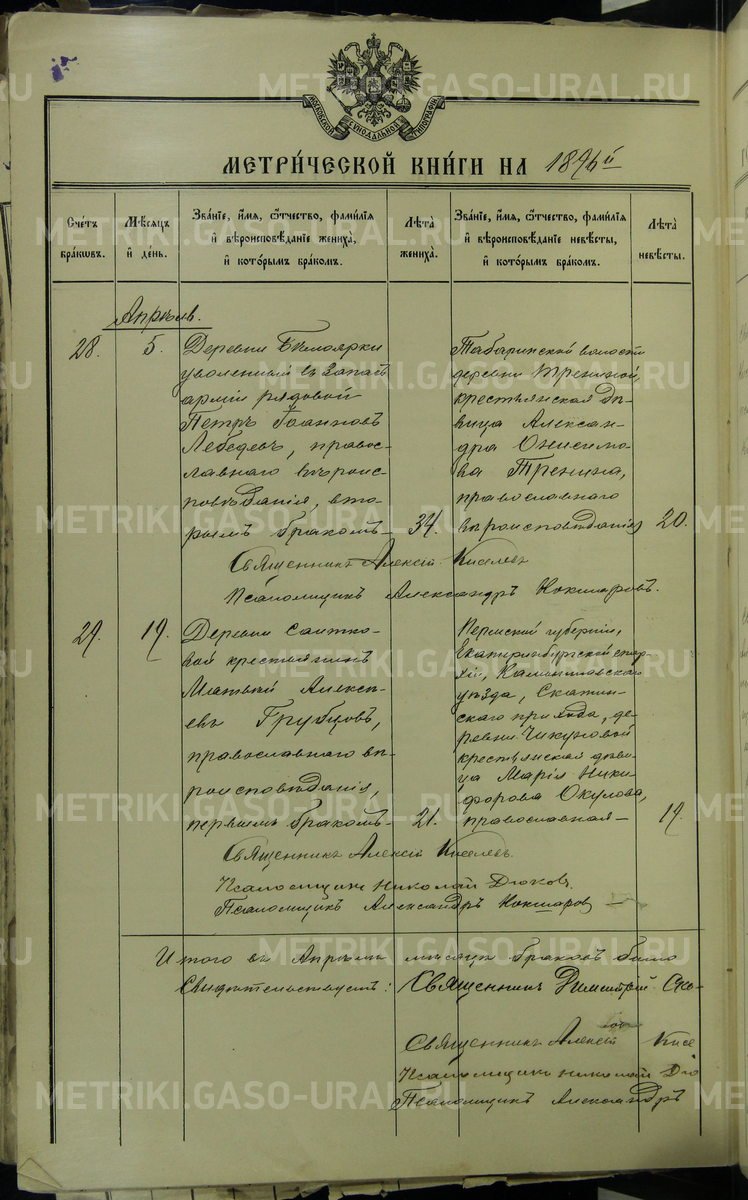 МОСКОВСКОЙ СѴНОДАЛЬНОЙ ТИПОГРАФІИ
МЕТРИ́ЧЕСКОЙ КНИ́ГИ НА 1896й
Сче́тъ бра́кѡвъ.
Мѣ́сяцъ и҆ де́нь.
Зва́ніе, и҆́мя, ѻ҆́тчество, фами́лія и҆ вѣроисповѣ́даніе жениха̀, и҆ кото́рымъ бра́комъ.
Лѣ́та жениха̀.
Зва́ніе, и҆́мя, ѻ҆́тчество, фами́лія и҆ вѣроисповѣ́даніе невѣ́сты, и҆ кото́рымъ бра́комъ.
Лѣ́та невѣ́сты.
Апрѣль.
28. 5.
Деревни Бѣлоярки
уволенный въ запасъ
арміи рядовой
Петръ Іоанновъ
Лебедевъ, правос-
лавнаго вѣроис-
повѣданія, вто-
рымъ бракомъ
34.
Табаринской волости
деревни Трениной,
крестьянская дѣ-
вица Алексан-
дра Онисимо-
ва Тренина,
православнаго
вѣроисповѣданія
20.
Священникъ Алексій Киселевъ
Псаломщикъ Александръ Нокшаровъ.
29. 19.
Деревни
крестьянинъ
Матвѣй Алексѣ-
евъ Грубцовъ,
православнаго вѣ-
роисповѣданія,
первымъ бракомъ
21.
Пермской губерніи,
Екатеринбургской епар-
хіи, Камышловскаго
уѣзда, Скатин-
скаго прихода, де-
ревни Чикуновой
крестьянская дѣви-
ца Марія Ники-
форова Окулова,
православная
19.
Священникъ Алексій Киселевъ.
Псаломщикъ Николай Дюковъ.
Псаломщикъ Александръ Нокшаровъ
Итого въ Апрѣлѣ мѣсяцѣ браковъ было
Свидѣтельствуютъ: Священникъ Димитрій
Священникъ Алексій Кисе
Псаломщикъ Николай Дю
Псаломщикъ Александръ
METRIKI.GASO-URAL.RU